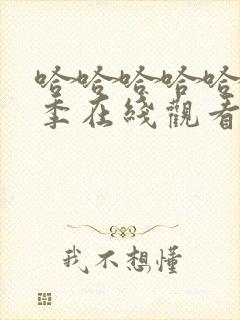 哈哈哈哈哈
季在綫觀看
我不想懂